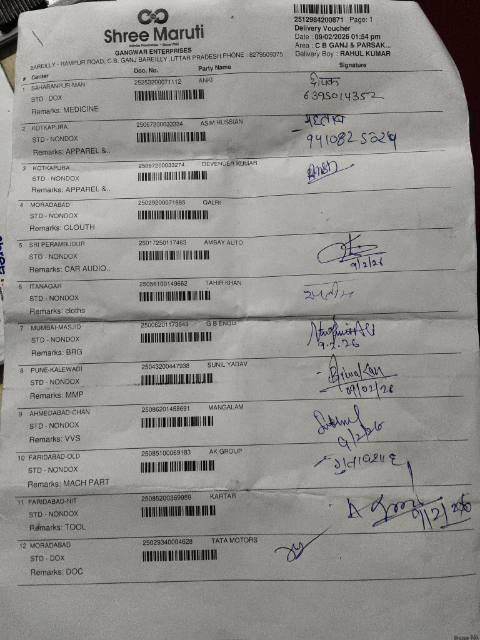 Shree Maruti
GANGWAR ENTERPRISES
BAREILLY - RAMPUR ROAD, C.B. GANJ BAREILLY ,UTTAR PRADESH PHONE : 8279509375
2512984200871 Page: 1
Delivery Voucher
Date : 09/02/2026 01:54 pm
Area : C.B GANJ & PARSAK...
Delivery Boy : RAHUL KUMAR
# Center Doc. No. Party Name Signature
1 SAHARANPUR-MAN 25253200071112 ANKI
STD - DOX
Remarks: MEDICINE
दीपक
6395014352
2 KOTKAPURA 25067200033334 ASIM HUSSIAN
STD - NONDOX
Remarks: APPAREL &..
9410825029
3 KOTKAPURA 25067200033274 DEVENDER KUMAR
STD - NONDOX
Remarks: APPAREL &..
4 MORADABAD 25029200071885 QALRI
STD - NONDOX
Remarks: CLOUTH
5 SRI PERAMBUDUR 25017250117463 AMBAY AUTO
STD - NONDOX
Remarks: CAR AUDIO..
9/2/26
6 ITANAGAR 25086100149862 TAHIR KHAN
STD - NONDOX
Remarks: cloths
7 MUMBAI-MASJID G S ENGG
STD - NONDOX
Remarks: BRG
9.2.26
8 PUNE-KALEWADI 25043200447938 SUNIL YADAV
STD - NONDOX
Remarks: MMP
09/02/26
9 AHMEDABAD-CHAN 25086201458691 MANGALAM
STD - NONDOX
Remarks: VVS
9/2/26
10 FARIDABAD-OLD 25085100069183 AK GROUP
STD - NONDOX
Remarks: MACH PART
11 FARIDABAD-NIT 25085200369989 KARTAR
STD - NONDOX
Remarks: TOOL
9/2/26
12 MORADABAD 25029340004628 TATA MOTORS
STD - DOX
Remarks: DOC